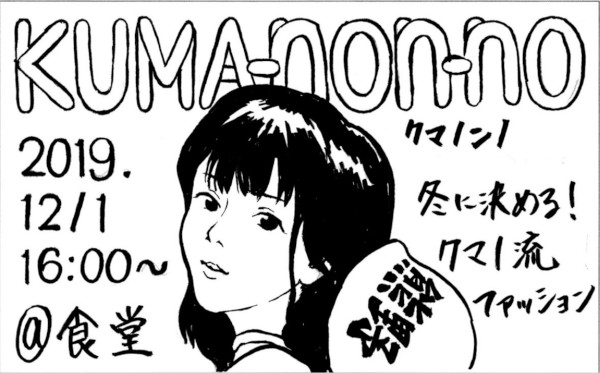 KUMA-non-no
クマノンノ
2019.
12/1
16:00〜
@食堂
冬に決める!
クマノ流
ファッション
熊野寮